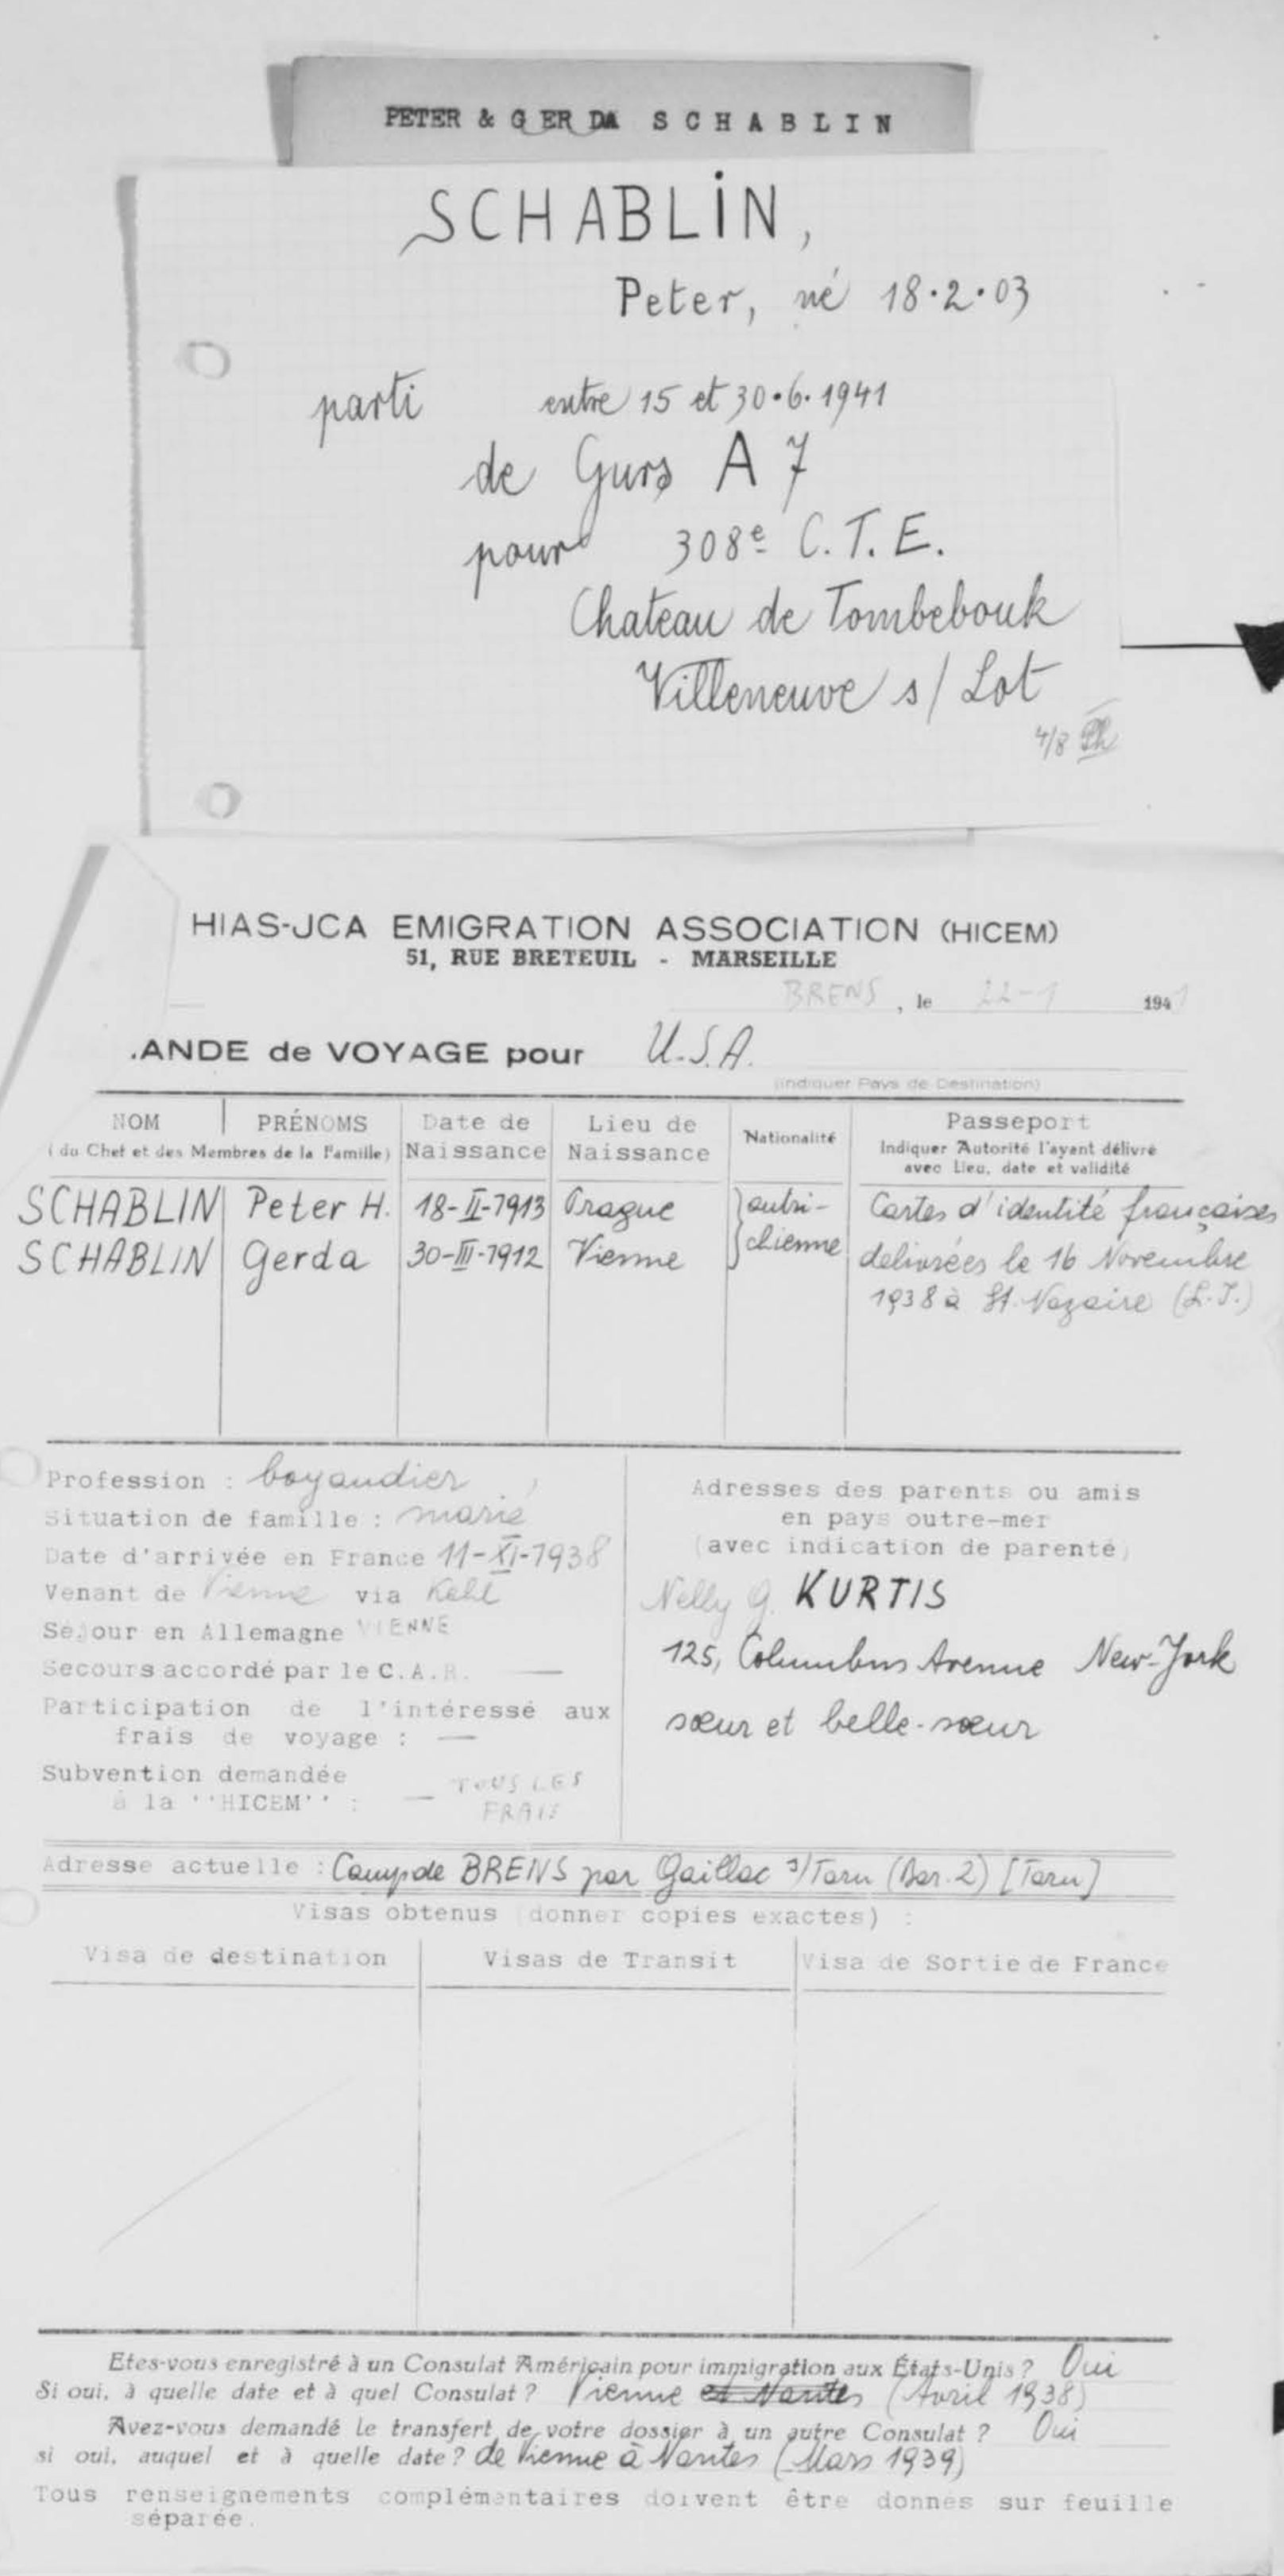 PETER & GERDA SCHABLIN
SCHABLIN,
Peter, né 18.2.03
parti entre 15 et 30.6.1941
de Gurs A 7
pour 308e C.T.E.
Chateau de Tombebouk
Villeneuve s/ Lot
4/8
HIAS-JCA EMIGRATION ASSOCIATION (HICEM)
51, RUE BRETEUIL - MARSEILLE
BRENS, le 22-1 1941
.ANDE de VOYAGE pour U.S.A.
(indiquer Pays de Destination)
NOM PRÉNOMS Date de Naissance Lieu de Naissance Nationalité Passeport
(du Chef et des Membres de la Famille) Indiquer Autorité l'ayant délivré
avec Lieu, date et validité
SCHABLIN Peter H. 18-II-1913 Prague autri- Cartes d'identité françaises
SCHABLIN Gerda 30-III-1912 Vienne chienne delivrées le 16 Novembre
1938 à St. Nazaire (L.I.)
Profession : boyaudier
Situation de famille : marié
Date d'arrivée en France 11-XI-1938
Venant de Vienne via Kehl
Séjour en Allemagne VIENNE
Secours accordé par le C.A.R. —
Participation de l'intéressé aux
frais de voyage : —
Subvention demandée
à la ''HICEM'' : — TOUS LES
FRAIS
Adresses des parents ou amis
en pays outre-mer
(avec indication de parenté)
Nelly G. KURTIS
125, Columbus Avenue New-York
sœur et belle-sœur
Adresse actuelle : Camp de BRENS par Gaillac s/Tarn (Bar. 2) [Tarn]
Visas obtenus (donner copies exactes) :
Visa de destination Visas de Transit Visa de Sortie de France
Etes-vous enregistré à un Consulat Américain pour immigration aux États-Unis ? Oui
Si oui, à quelle date et à quel Consulat ? Vienne et Nantes (Avril 1938)
Avez-vous demandé le transfert de votre dossier à un autre Consulat ? Oui
si oui, auquel et à quelle date ? de Vienne à Nantes (Mars 1939)
Tous renseignements complémentaires doivent être donnés sur feuille
séparée.